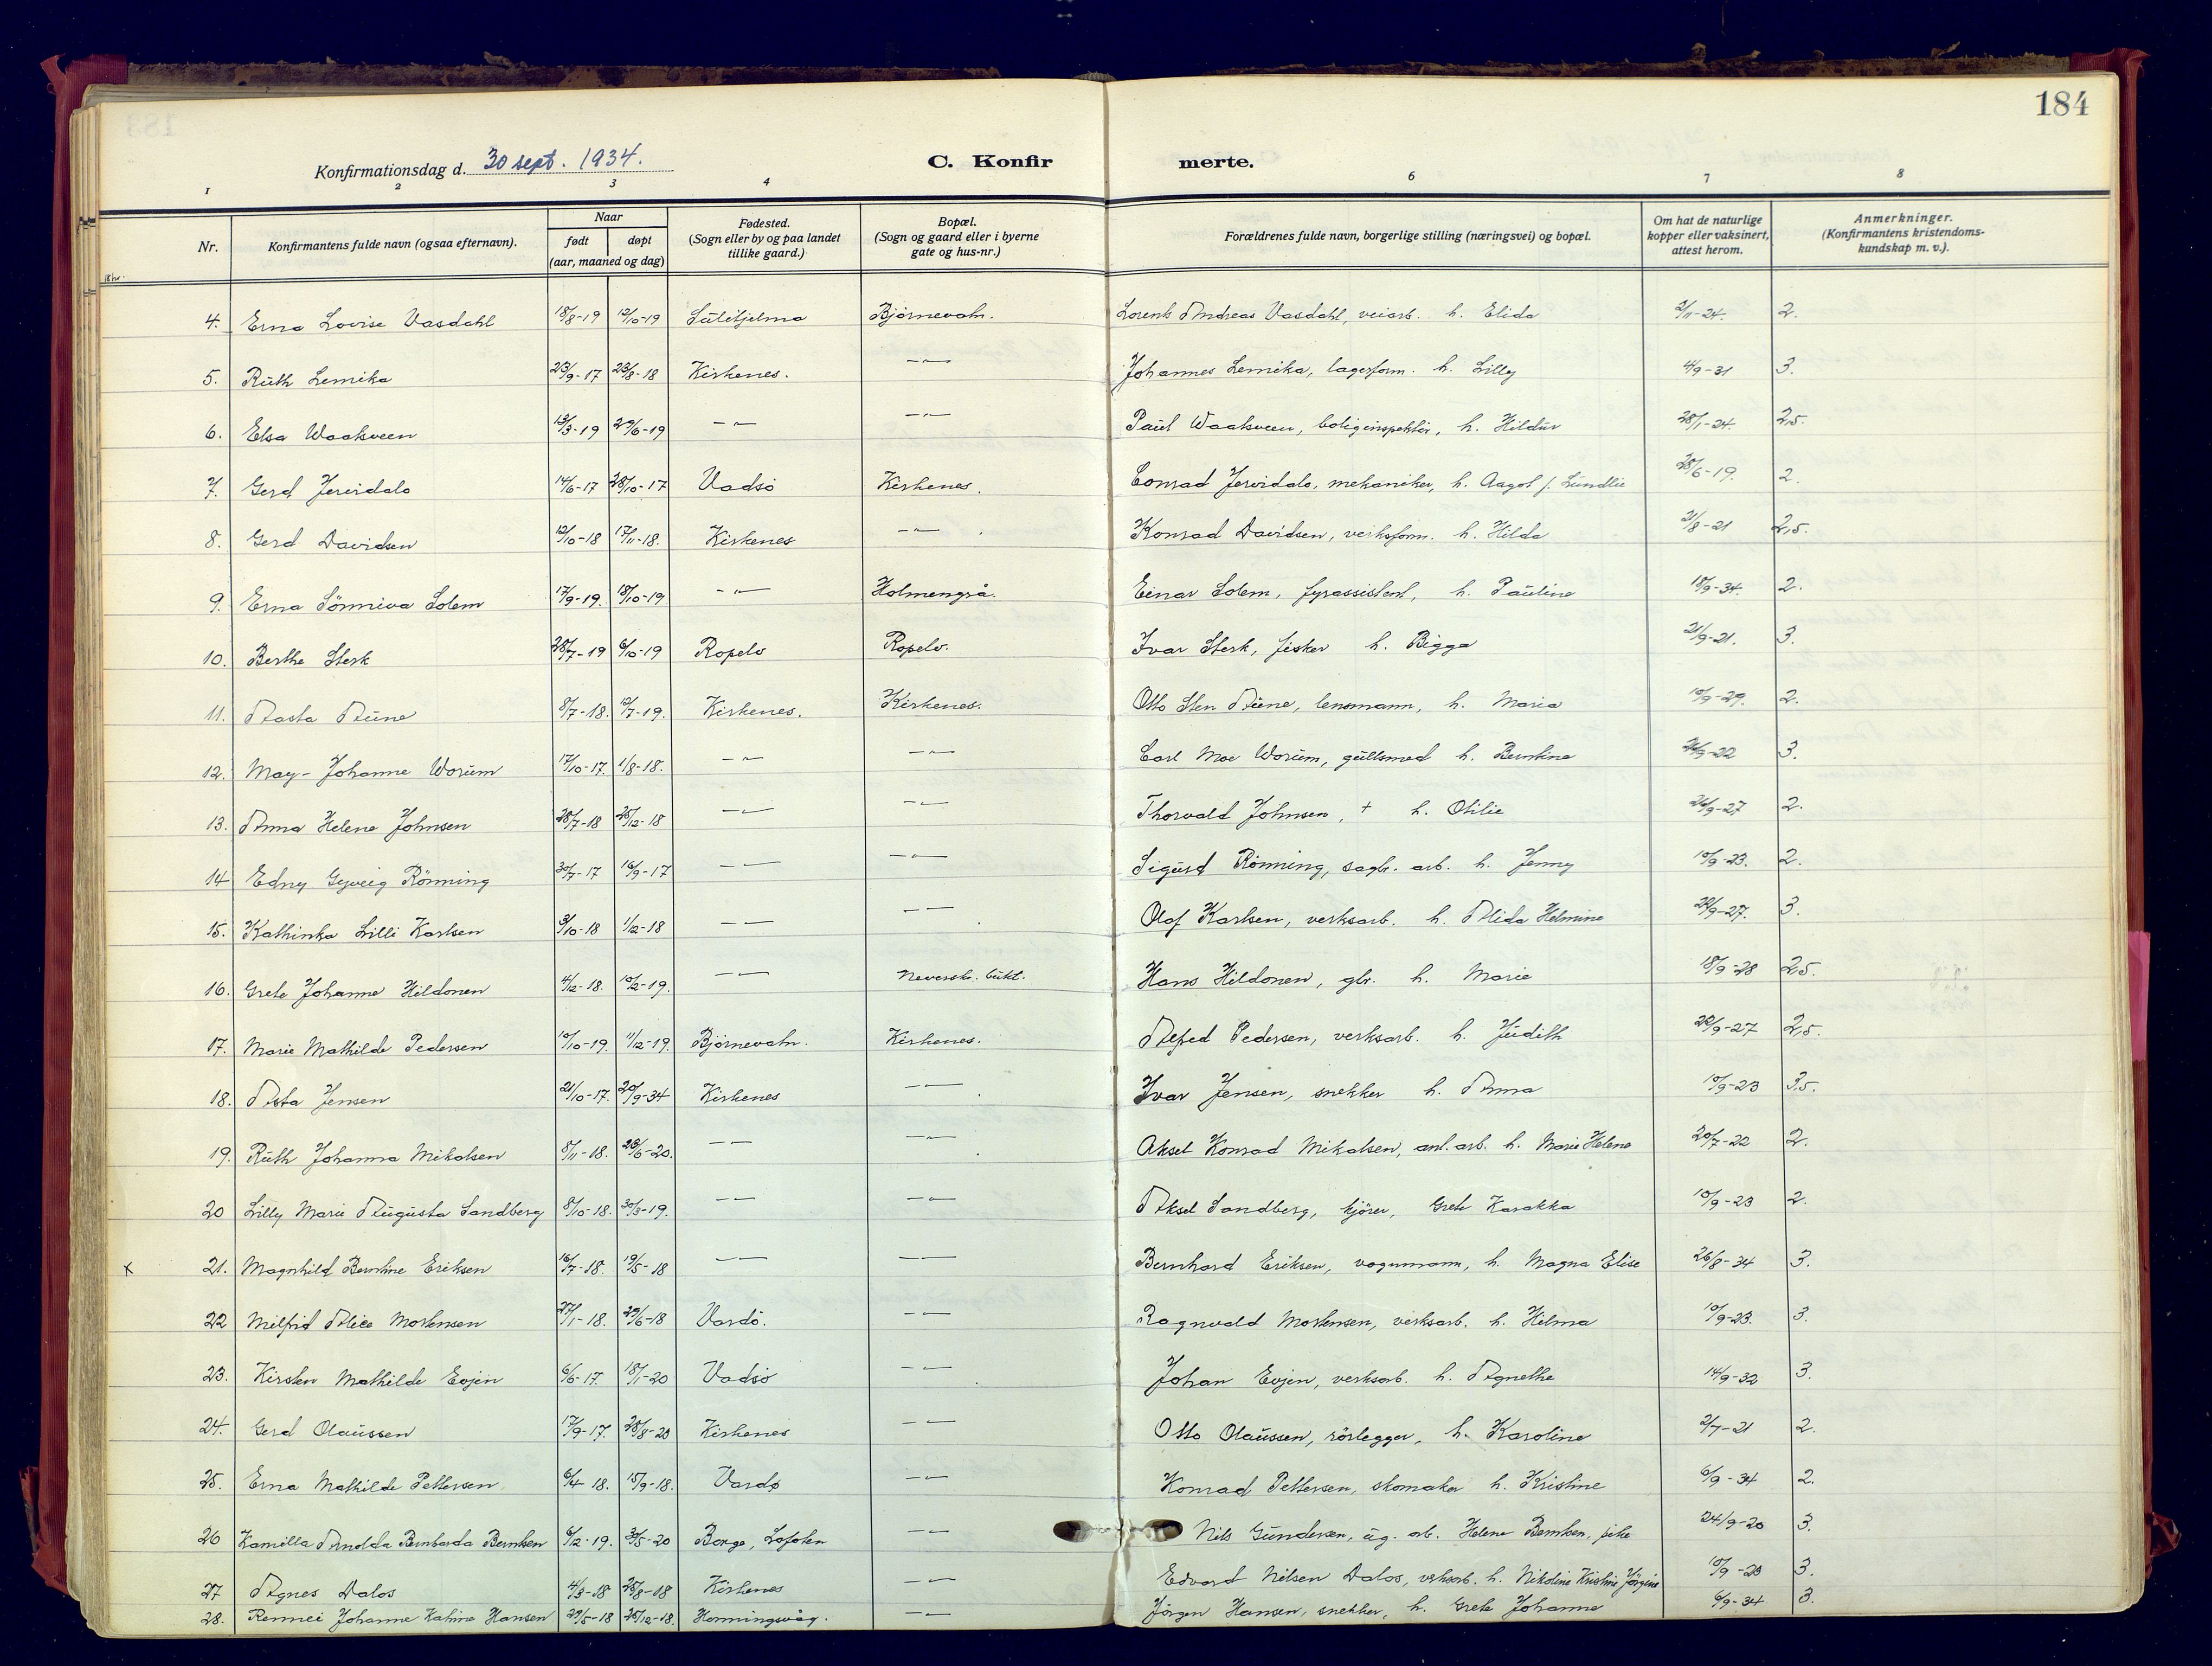 184
Konfirmationsdag d. 30 sept. 1934.
C. Konfir merte.
1 2 3 4 6 7 8
Nr. Konfirmantens fulde navn (ogsaa efternavn). Naar født døpt (aar, maaned og dag) Fødested. (Sogn eller by og paa landet tillike gaard.) Bopæl. (Sogn og gaard eller i byerne gate og hus-nr.) Forældrenes fulde navn, borgerlige stilling (næringsvei) og bopæl. Om hat de naturlige kopper eller vaksinert, attest herom. Anmerkninger. (Konfirmantens kristendomskundskap m. v.).
4. Erna Lovise Vasdahl 18/8-19 12/10-19 Sulitjelma Björnevatn. Lorents Andreas Vasdahl, veiarb. h. Elida 2/11-24. 2.
5. Ruth Lemika 25/9-17 25/8-18 Kirkenes. —"— Johannes Lemika, lagerform. h. Lilly 4/9-31 3.
6. Elsa Waaksveen 13/3-19 29/6-19 —"— —"— Paul Waaksveen, boliginspektör, h. Hildur 28/1-24. 2,5.
7. Gerd Jervidalo 14/6-17 28/10-17 Vadsö Kirkenes. Conrad Jervidalo, mekaniker, h. Aagot f. Lundlie 28/6-19. 2.
8. Gerd Davidsen 12/10-18 17/11-18. Kirkenes —"— Konrad Davidsen, verksform. h. Hilda 2/8-21 2,5.
9. Erna Sönniva Solem 17/9-19. 18/10-19 —"— Holmengrå. Einar Solem, fyrassistent, h. Pauline 18/9-34. 2.
10. Berthe Sterk 28/7-19 6/10-19 Ropelv Ropelv. Ivar Sterk, fisker h. Bigga 21/9-21. 3.
11. Aasta Aune 8/7-18. 12/7-19. Kirkenes. Kirkenes. Otto Sten Aune, lensmann, h. Maria 10/9-29. 2.
12. May-Johanne Worum 17/10-17. 1/8-18. —"— —"— Carl Moe Worum, gullsmed h. Berntine 3.
13. Anna Helene Johnsen 28/7-18 26/12-18 —"— —"— Thorvald Johnsen, + h. Otilie 26/9-27 2.
14 Edny Gyveig Rönning 30/7-17 16/9-17 —"— —"— Sigurd Rönning, sagbr. arb. h. Jenny 10/9-23. 2.
15. Kathinka Lilli Karlsen 3/10-18 1/12-18 —"— —"— Olaf Karlsen, verksarb. h. Alida Helmine 24/9-27. 3.
16. Grete Johanne Hildonen 4/12-18. 10/2-19. —"— Neversk. bukt. Hans Hildonen, gbr. h. Marie 18/9-28 2,5.
17. Marie Mathilde Pedersen 10/10-19. 11/12-19. Björnevatn. Kirkenes. Alfred Pedersen, verksarb. h. Judith 22/9-27 2,5.
18. Asta Jensen 21/10-17. 20/9-34 Kirkenes —"— Ivar Jensen, snekker h. Anna 10/9-23 3,5.
19. Ruth Johanna Mikalsen 8/11-18. 23/6-20. —"— —"— Aksel Konrad Mikalsen, anl. arb. h. Marie Helene 20/7-22 2.
20 Lilly Marie Augusta Sandberg 8/10-18. 30/3-19. —"— —"— Aksel Sandberg, kjörer, Grete Karakka 10/9-23 2.
x 21. Magnhild Berntine Eriksen 16/7-18. 19/5-18 —"— —"— Bernhard Eriksen, vognmann, h. Magna Elise 26/8-34 3.
22 Milfrid Alice Mortensen 27/1-18. 29/6-18 Vardö. —"— Ragnvald Mortensen, verksarb. h. Hilma 10/9-23. 3.
23. Kirsten Mathilde Evjen 6/6-17. 18/1-20 Vadsö —"— Johan Evjen, verksarb. h. Agnethe 14/9-32 3.
24. Gerd Olaussen 17/9-17. 28/8-20 Kirkenes —"— Otto Olaussen, rörlegger, h. Karoline 2/7-21 2.
25. Erna Mathilde Pettersen 6/4 18. 15/9-18. Vardø —"— Konrad Pettersen, skomaker h. Kristine 6/9-34 2.
26 Kamilla Arnolda Bernharda Berntsen 6/12-19. 30/5-20 Borge, Lofoten —"— Nils Gundersen, ug. arb. Helene Berntsen, pike 24/9-20 3.
27 Agnes Dalos 4/3-18 25/8-18 Kirkenes —"— Edvard Nilsen Dalos, verksarb. h. Nikoline Kristine Jörgine 10/9-23 3.
28. Rennei Johanne Katrine Hansen 29/5-18 26/12-18. Honningsvåg. —"— Jörgen Hansen, snekker, h. Grete Johanne 6/9-34 3.